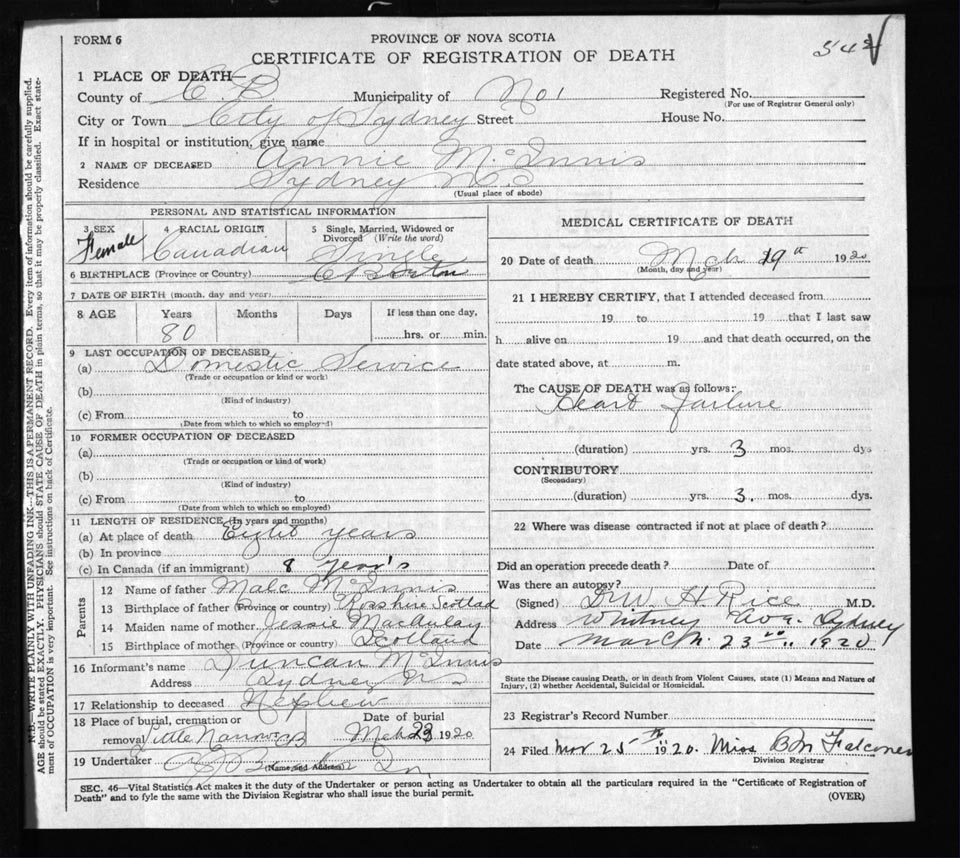 FORM 6
PROVINCE OF NOVA SCOTIA
CERTIFICATE OF REGISTRATION OF DEATH
542
1 PLACE OF DEATH—
County of C B Municipality of No 1 Registered No.
(For use of Registrar General only)
City or Town City of Sydney Street House No.
If in hospital or institution, give name
2 NAME OF DECEASED Annie McInnis
Residence Sydney N S
(Usual place of abode)
PERSONAL AND STATISTICAL INFORMATION
3 SEX 4 RACIAL ORIGIN 5 Single, Married, Widowed or Divorced (Write the word)
Female Canadian Single
6 BIRTHPLACE (Province or Country)
7 DATE OF BIRTH (month, day and year)
8 AGE Years Months Days If less than one day,
80 hrs. or min.
9 LAST OCCUPATION OF DECEASED
(a) Domestic Service
(Trade or occupation or kind or work)
(b)
(Kind of industry)
(c) From to
(Date from which to which so employed)
10 FORMER OCCUPATION OF DECEASED
(a)
(Trade or occupation or kind of work)
(b)
(Kind of industry)
(c) From to
(Date from which to which so employed)
11 LENGTH OF RESIDENCE (In years and months)
(a) At place of death Eight years
(b) In province
(c) In Canada (if an immigrant) 8 year's
Parents
12 Name of father Malc McInnis
13 Birthplace of father (Province or country) Rosshire Scotlad
14 Maiden name of mother Jessie Macaulay
15 Birthplace of mother (Province or country) Scotland
16 Informant's name Duncan McInnis
Address Sydney N S
17 Relationship to deceased Nephew
18 Place of burial, cremation or removal Little Narrows CB
Date of burial Mch 23 1920
19 Undertaker
(Name and Address)
MEDICAL CERTIFICATE OF DEATH
20 Date of death Mch 19th 1920
(Month, day and year)
21 I HEREBY CERTIFY, that I attended deceased from
19 to 19 that I last saw
h alive on 19 and that death occurred, on the
date stated above, at m.
The CAUSE OF DEATH was as follows:
Heart failure
(duration) yrs. 3 mos. dys
CONTRIBUTORY
(Secondary)
(duration) yrs. 3. mos. dys.
22 Where was disease contracted if not at place of death?
Did an operation precede death? Date of
Was there an autopsy?
(Signed) Dr W H. Rice M.D.
Address Whitney Ave. Sydney
Date March 23rd 1920
State the Disease causing Death, or in death from Violent Causes, state (1) Means and Nature of
Injury, (2) whether Accidental, Suicidal or Homicidal.
23 Registrar's Record Number
24 Filed Mar 25th 1920. Miss B M Falconer
Division Registrar
SEC. 46—Vital Statistics Act makes it the duty of the Undertaker or person acting as Undertaker to obtain all the particulars required in the "Certificate of Registration of
Death" and to fyle the same with the Division Registrar who shall issue the burial permit.
(OVER)
N.B.—WRITE PLAINLY WITH UNFADING INK—THIS IS A PERMANENT RECORD. Every item of information should be carefully supplied.
AGE should be stated EXACTLY. PHYSICIANS should STATE CAUSE OF DEATH in plain terms, so that it may be properly classified. Exact state-
ment of OCCUPATION is very important. See instructions on back of Certificate.